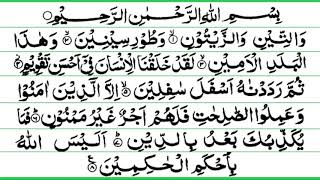 بِسْمِ اللهِ الرَّحْمٰنِ الرَّحِيْمِ ○
وَالتِّيْنِ وَالزَّيْتُوْنِ ۙ۱ وَطُوْرِ سِيْنِيْنَ ۙ۲ وَهٰذَا
الْبَلَدِ الْاَمِيْنِ ۙ۳ لَقَدْ خَلَقْنَا الْاِنْسَانَ فِيْٓ اَحْسَنِ تَقْوِيْمٍ ۴
ثُمَّ رَدَدْنٰهُ اَسْفَلَ سٰفِلِيْنَ ۙ۵ اِلَّا الَّذِيْنَ اٰمَنُوْا
وَعَمِلُوا الصّٰلِحٰتِ فَلَهُمْ اَجْرٌ غَيْرُ مَمْنُوْنٍ ۶ فَمَا
يُكَذِّبُكَ بَعْدُ بِالدِّيْنِ ۷ اَلَيْسَ اللهُ
بِاَحْكَمِ الْحٰكِمِيْنَ ۸